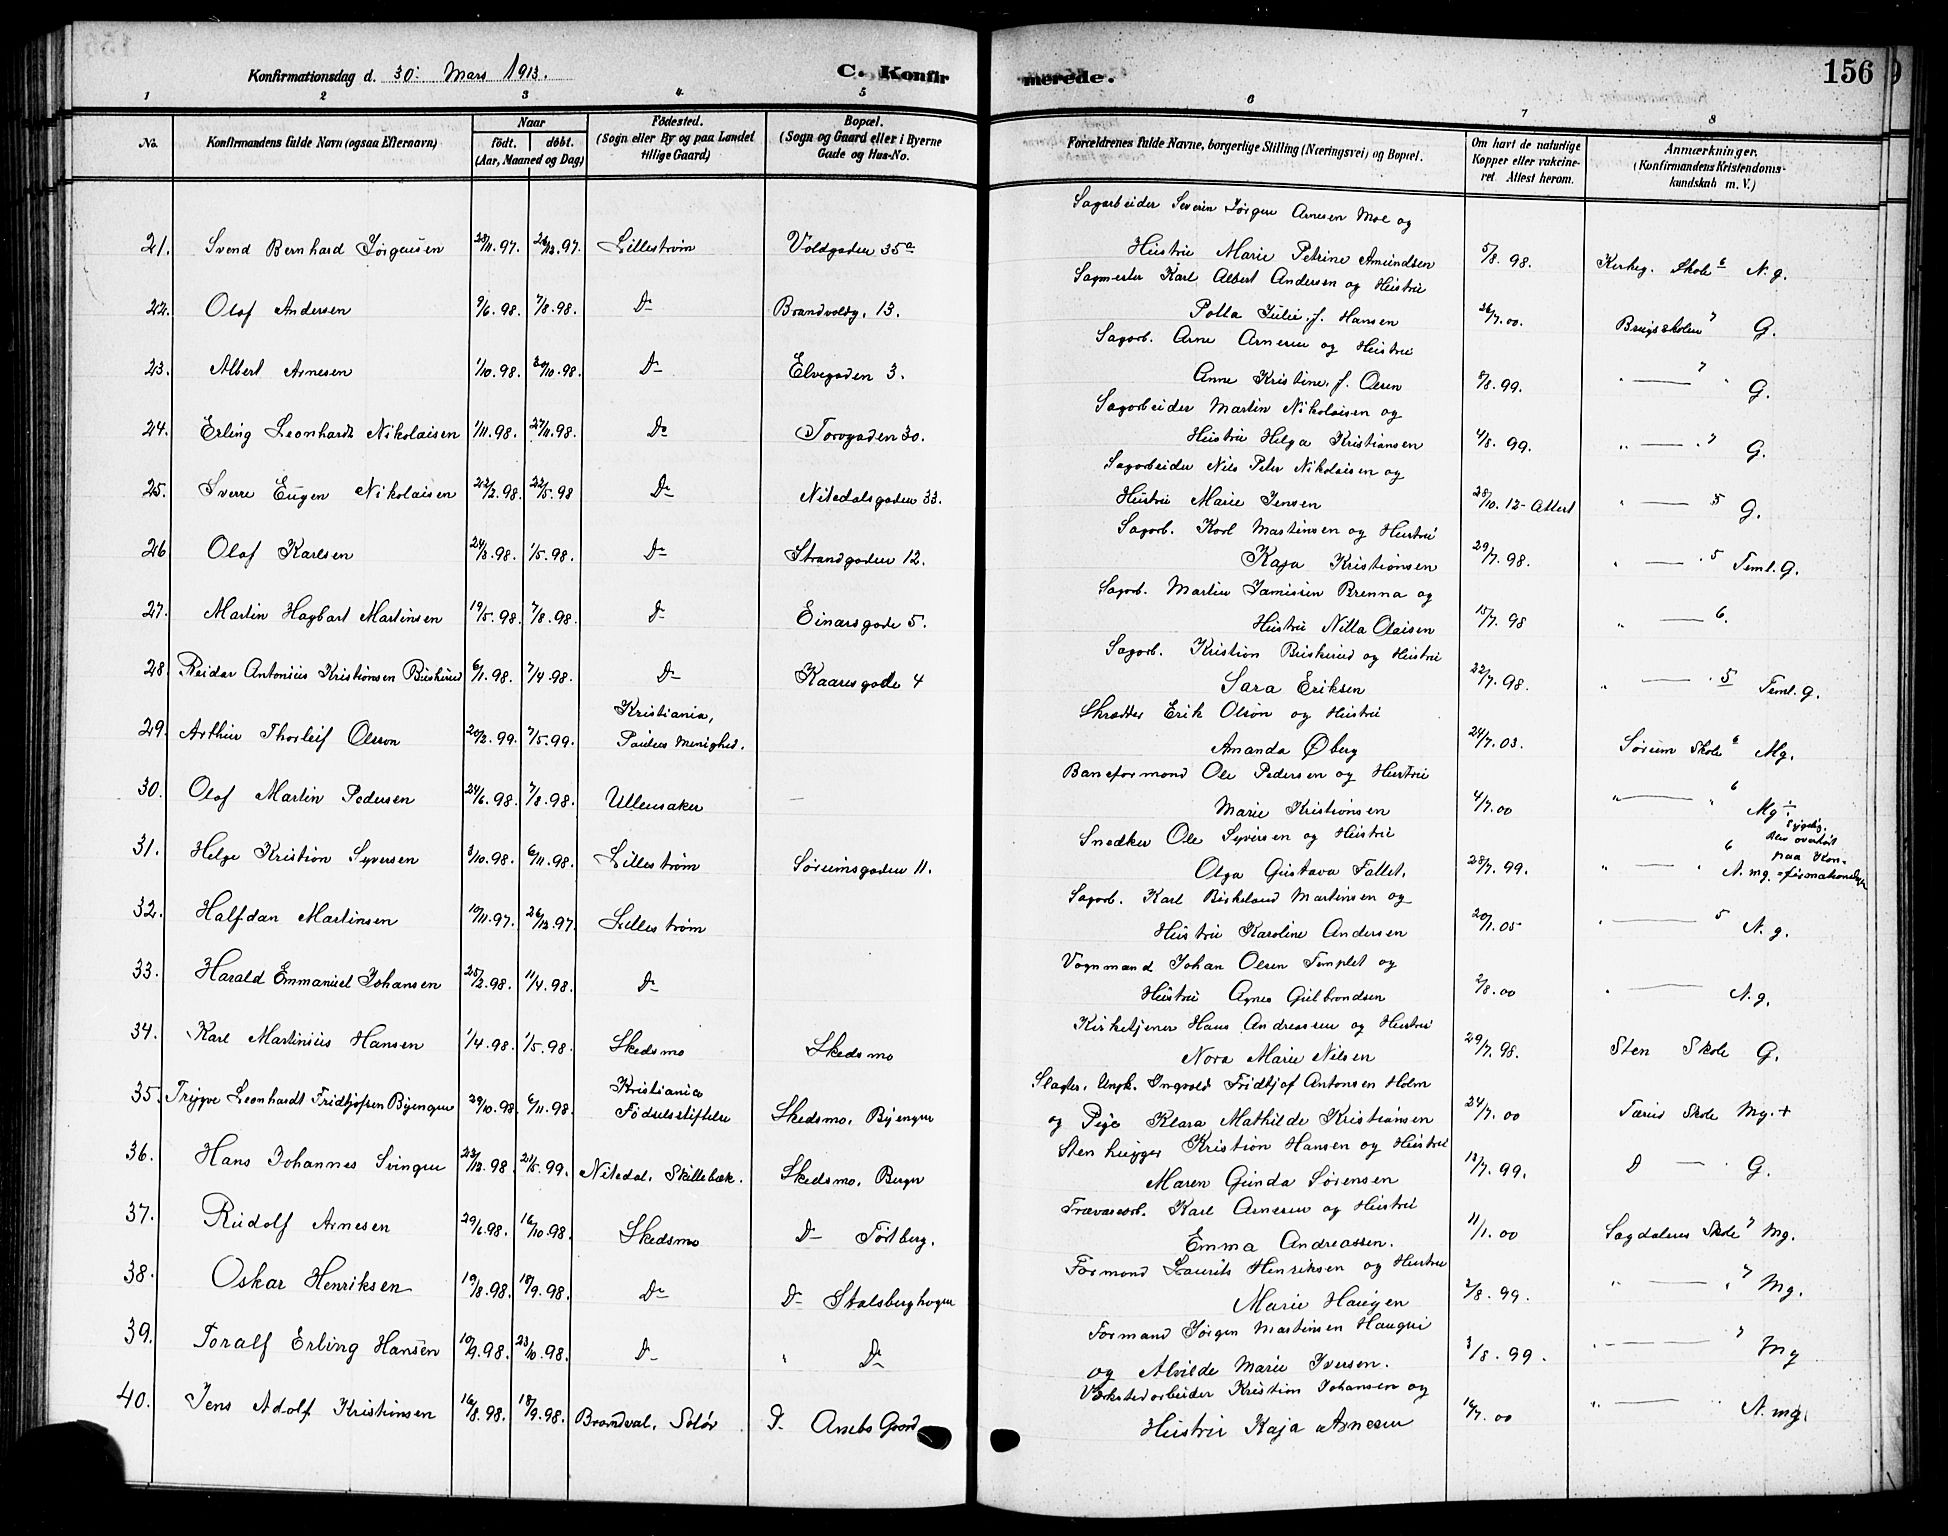 Konfirmationsdag d. 30. Mars 1913. C. Konfirmerede. 156
1 2 3 4 5 6 7 8
No. Konfirmandens fulde Navn (ogsaa Efternavn) Naar født. døbt. (Aar, Maaned og Dag) Fødested. (Sogn eller By og paa Landet tillige Gaard) Bopæl. (Sogn og Gaard eller i Byerne Gade og Hus-No. Forældrenes fulde Navne, borgerlige Stilling (Næringsvei) og Bopæl. Om havt de naturlige Kopper eller vakcineret. Attest herom. Anmærkninger. (Konfirmandens Kristendomskundskab m. V.)
Sagarbeider Severin Jørgen Arnesen Moe og
21. Svend Bernhard Jørgensen 28/11.97. 26/12.97. Lillestrøm Voldgaden 35a Hustru Marie Petrine Amundsen 5/8.98. Kirkeg. Skole 6 N.g.
Sagmester Karl Albert Andersen og Hustru
22. Olaf Andersen 9/6.98. 7/8.98. Do Brandvoldg. 13. Polla Julie, f. Hansen 26/7.00. Brugsskolen 7 G.
Sagarb. Arne Arnesen og Hustru
23. Albert Arnesen 1/10.98. 30/10.98. Do Elvegaden 3. Anne Kristine, f. Olsen 8/8.99. " — 7 " G.
Sagarbeider Martin Nikolaisen og
24. Erling Leonhardt Nikolaisen 1/11.98. 27/11.98. Do Torvgaden 30. Hustru Helga Kristiansen 4/8.99. " — " 7 G.
Sagarbeider Nils Peter Nikolaisen og
25. Sverre Eugen Nikolaisen 22/2.98. 22/5.98 Do Nitedalsgaden 33. Hustru Marie Jensen 28/10.12 - Attest " — 5 G.
Sagarb. Karl Martinsen og Hustru
26 Olaf Karlsen 24/3.98. 1/5.98. Do Strandgaden 12. Kaja Kristiansen 29/7.98. " — " 5 Teml. G.
Sagarb. Martin Jamissen Brenna og
27. Martin Hagbart Martinsen 19/5.98. 7/8.98. Do Einarsgade 5. Hustru Nilla Olaisen 15/7.98 " — 6.
Sagarb. Kristian Buskerud og Hustru
28 Reidar Antonius Kristiansen Buskerud 6/1.98. 7/4.98. Do Kaaresgade 4 Sara Eriksen 22/7.98. " — " 5 Teml. G.
Kristiania, Skrædder Erik Olsön og Hustru
29. Arthur Thorleif Olsson 20/2.99. 7/5.99. Paulus Menighed. Amanda Øberg 24/7.03. Sørum Skole 6 Mg.
Baneformand Ole Pedersen og Hustru
30. Olaf Martin Pedersen 24/6.98. 7/8.98. Ullensaker — Marie Kristiansen 4/7.00 " — " 6 Mg ÷
Snedker Ole Syversen og Hustru Sygelig. Blev overhørt
31. Helge Kristian Syversen 3/10.98. 6/11.98. Lillestrøm Sørumsgaden 11. Olga Gustava Fallet. 28/7.99. " — " 6 N.mg. paa Konfirmationsdagen
Sagarb. Karl Birkeland Martinsen og
32. Halfdan Martinsen 10/11.97. 26/12.97. Lillestrøm Hustru Karoline Andersen 20/1.05 " — 5 N.g.
Vognmand Johan Olsen Templet og
33. Harald Emmanuel Johansen 25/2.98. 11/4.98. Do Hustru Agnes Gulbrandsen 2/8.00 " — N.g.
Kirketjener Hans Andreassen og Hustru
34. Karl Martinius Hansen 1/4.98. 1/5.98. Skedsmo Skedsmo Nora Marie Nilsen 29/7.98. Sten Skole G.
Kristiania Slagter. Ungk. Ingvald Fridtjof Antonsen Holm
35. Trygve Leonhardt Fridtjofsen Bjengen 29/10.98 6/11.98. Fødselsstiftelse Skedsmo, Bjengen og Pige Klara Mathilde Kristiansen 24/7.00 Tærud Skole Mg. +
Stenhugger Kristian Hansen og Hustru
36. Hans Johannes Svingen 23/12.98. 21/5.99. Nitedal. Skillebæk. Skedsmo. Berger Maren Gunda Sørensen 18/7.99. D — G.
Trævarearb. Karl Arnesen og Hustru
37. Rudolf Arnesen 29/6.98. 16/10.98. Skedsmo Do Tortberg. Emma Andreassen. 11/1.00 Sagdalens Skole 7 Mg.
Formand Laurits Henriksen og Hustru
38. Oskar Henriksen 19/8.98. 18/9.98. Do Do Stalsberghagen Marie Haugen 2/8.99. " — " 7 Mg.
Formand Jørgen Martinsen Haugen
39. Toralf Erling Hansen 10/9.98. 23/10.98. Do " Do og Alvilde Marie Iversen. 3/8.99. " — 7 Mg
Værkstedarbeider Kristian Johansen og
40. Jens Adolf Kristiansen 16/8.98. 18/9.98. Brandval. Solør D. Aneby Gaard Hustru Kaja Arnesen 14/7.00 " — " N.mg.